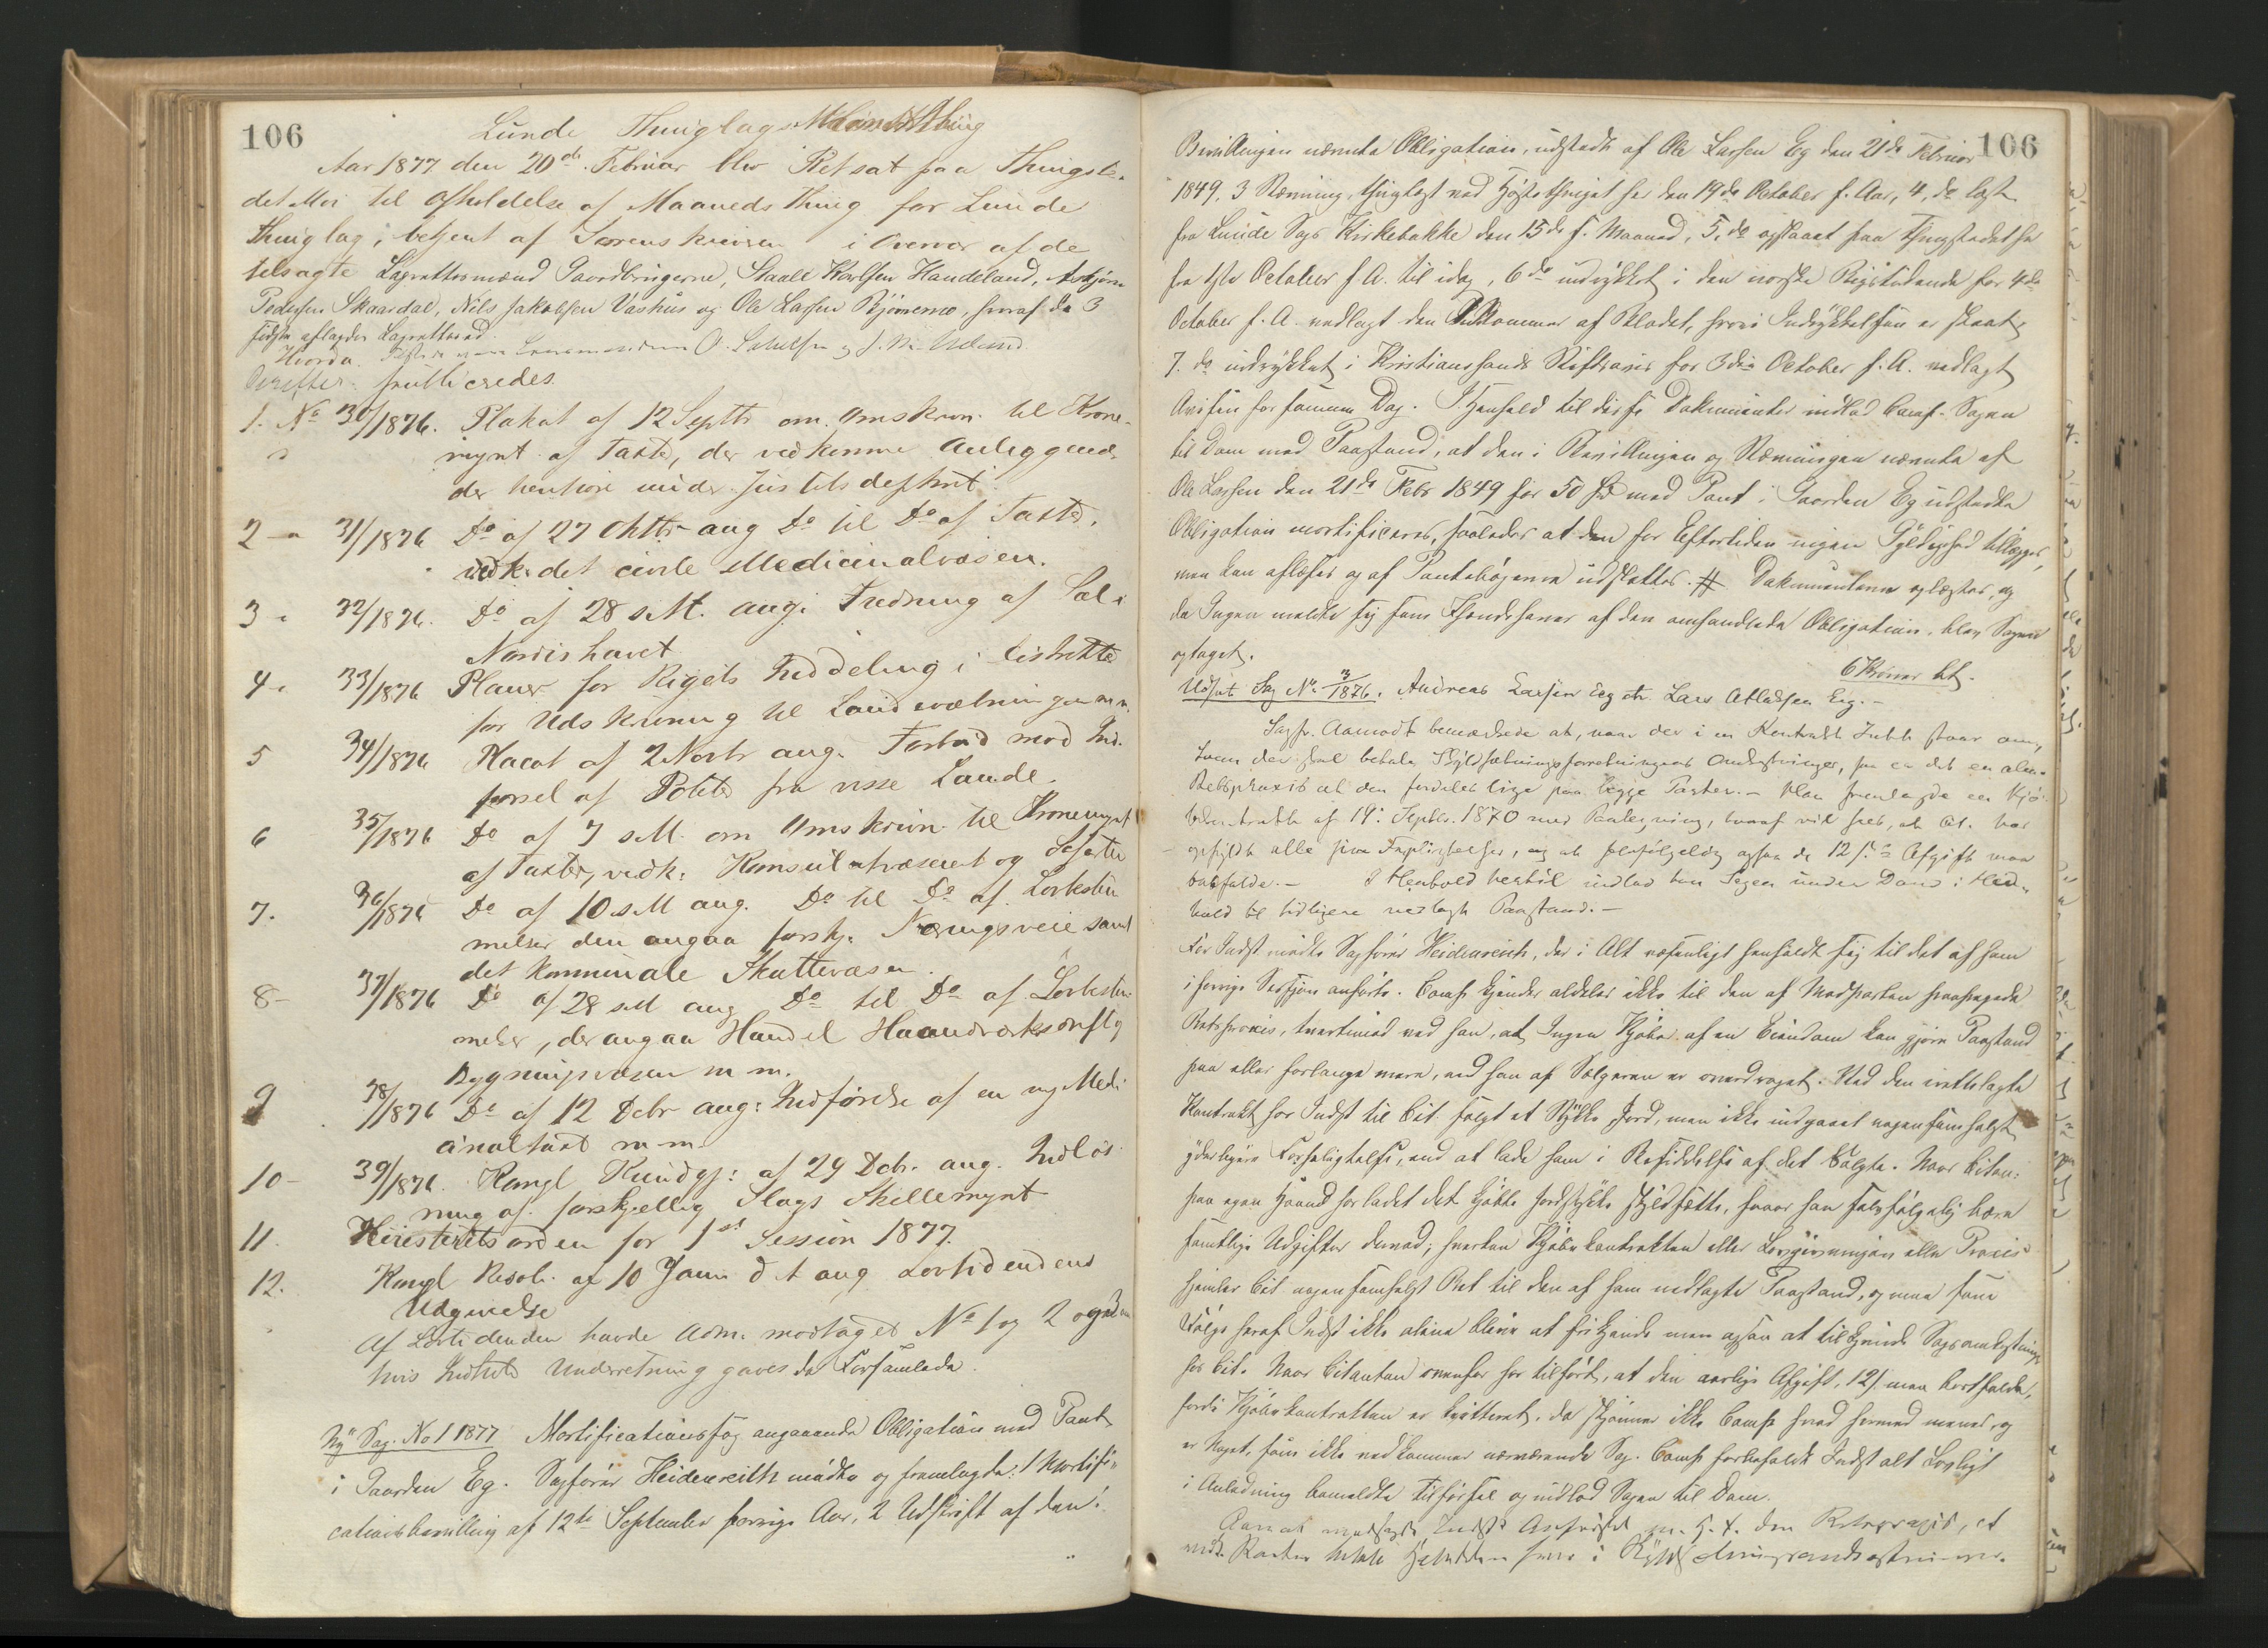 106
Lunde Thinglags Maanedsthing
Aar 1877 den 20de Februar blev Ret sat paa Thingste-
det Moi til Afholdelse af Maaneds Thing for Lunde
Thinglag, betjent af Sorenskriveren i Overvær af de
tilsagte Lagrettesmænd Gaardbrugerne, Staale Karlsen Handeland, Asbjørn
Pedersen Skaardal, Nils Jakobsen Vashus og Ole Larsen Bjørnemo, hvoraf de 3
sidste aflagde Lagrettesed.
Hvorda
Derefter publiceredes
1. No 30/1876. Plakat af 12 Septbr om Omskrivn. til Krone-
mynt af Taxter, der vedkomme Anliggender
der henhøre under Justitsdepthmt
2 - 31/1876 Do af 27 Oktbr ang Do til Do af Taxter,
vedk. det civile Medicinalvæsen.
3 - 32/1876. Do af 28 s.M. ang. Fredning af Sæl i
Nordishavet
4 - 33/1876 Planer for Rigets Inddeling i Distrikter
for Udskrivning til Landeværningen m.m.
5 34/1876 Placat af 2 Novbr ang. Forbud mod Ind-
førsel af Poteter fra visse Lande.
6 35/1876 Do af 7 s.M. om Omskrivn. til Kronemynt
af Taxter, vedk. Konsulatvæsenet og Søfarten
7. 36/1876 Do af 10 s.M ang. Do til Do af Lovbestem
melser den angaa forskj. Næringsveie samt
det kommunale Skattevæsen.
8- 37/1876 Do af 28 s.M ang Do til Do af Lovbestem-
melser, der angaa Handel Haandværksdrift og
Bygningsvæsen m m.
9 38/1876 Do af 12 Debr ang. Indførelse af en ny Medi
cinaltaxt m-m.
10 - 39/1876. Kongl Kundgj: af 29 Debr. ang. Indløs-
ning af forskjellig Slags Skillemynt
11. Høiesteretsorden for 1st Session 1877.
12. Kongl Resol. af 10 Janr d A ang Lovtidendens
Udgivelse
Af Lovtidenden havde Adm. modtaget No 1 og 2 og om
hvis Indhold Underretning gaves de Forsamlede.
Ny Sag. No 1 1877 Mortificationssag angaaende Obligation med Pant
i Gaarden Eg. Sagfører Heidenreich mødte og fremlagde: 1 Mortifi-
cationsbevilling af 12te September forrige Aar, 2 Udskrift af den i
106
Bevillingen nævnte Obligation, udstedt af Ole Larsen Eg den 21de Februar
1849, 3 Stævning, thinglæst ved Høstethinget her den 19de October f. Aar, 4, do læst
fra Lunde Sogns Kirkebakke den 15de f. Maaned, 5, do opslaaet paa Thingstedet her
fra 1ste October f A. til idag, 6 do indrykket i den norske Rigstidende for 4de
October f. A. vedlagt den Nummer af Bladet, hvori Indrykkelsen er skeet,
7. do indrykket i Kristianssands Stiftsavis for 3die October f. A. vedlagt
Avisen for samme Dag. I Henhold til disse Dokumenter indlod Comp. Sagen
til Dom med Paastand, at den i Bevillingen og Stævningen nævnte af
Ole Larsen den 21de Febr 1849 for 50 Spd med Pant i Gaarden Eg udstedte
Obligation mortificeres, saaledes at den for Eftertiden ingen Gyldighed tillægges,
men kan aflæses og af Pantebøgerne udslettes. # Dokumenterne oplæstes, og
da Ingen meldte sig som Ihændehaver af den omhandlede Obligation, blev Sagen
optaget.
6 Kroner bt.
Udsat Sag No 3/1876. Andreas Larsen Eeg ctr. Lars Atlaksen Eeg.-
Sagfr. Aamodt bemærkede at, naar der i en Kontrakt Intet staar om,
hvem der skal betale Skyldsætningsforretningens Omkostninger, saa er det en alm.
Retspraxis at den fordeles lige paa begge Parter. - Han fremlagde en Kjø-
bekontrakt af 19. Septbr. 1870 med Paategning, hvoraf vil sees, at Cit. har
opfyldt alle sine Forpligtelser, og at selvfølgelig ogsaa de 12 s. Afgift maa
bortfalde. - I Henhold hertil indlod han Sagen under Dom i Hen-
hold til tidligere nedlagte Paastand. -
For Indst mødte Sagfører Heidenreich, der i Alt væsentligt henholdt sig til det af ham
i forrige Session anførte. Comp kjender aldeles ikke til den af Modparten paaberaabte
Retspraxis, tvertimod ved han, at Ingen Kjøber af en Eiendom kan gjøre Paastand
paa eller forlange mere, end han af Sælgeren er overdraget. Ved den irettelagte
Kontrakt har Indst til Cit. solgt et Stykke Jord, men ikke indgaaet nogensomhelst
yderligere Forpligtelse, end at lade ham i Besiddelse af det Solgte. Naar Citan:
paa egen Haand har ladet det kjøbte Jordstykke skyldsætte, saa har han selvfølgelig bære
samtlige Udgifter derved; hverken Kjøbekontrakten eller Lovgivningen eller Praxis
hjemler Cit nogensomhelst Ret til den af ham nedlagte Paastand, og maa som
Følge heraf Indst ikke alene blive at frikjende men ogsaa at tilkjende Sagsomkostninger
hos Cit. Naar Citanten ovenfor har tilført, at den aarlige Afgift, 12 s. maa bortfalde,
fordi Kjøbekontrakten er kvitteret, da skjønner ikke Comp hvad hermed menes, og
er Noget, som ikke vedkommer nærværende Sag. Comp forbeholdt Indst alt Lovligt
i Anledning bemeldte Tilførsel og indlod Sagen til Dom.
Aamodt modsagde Indsts Anførsel m. H. t. den Retspraxis, at